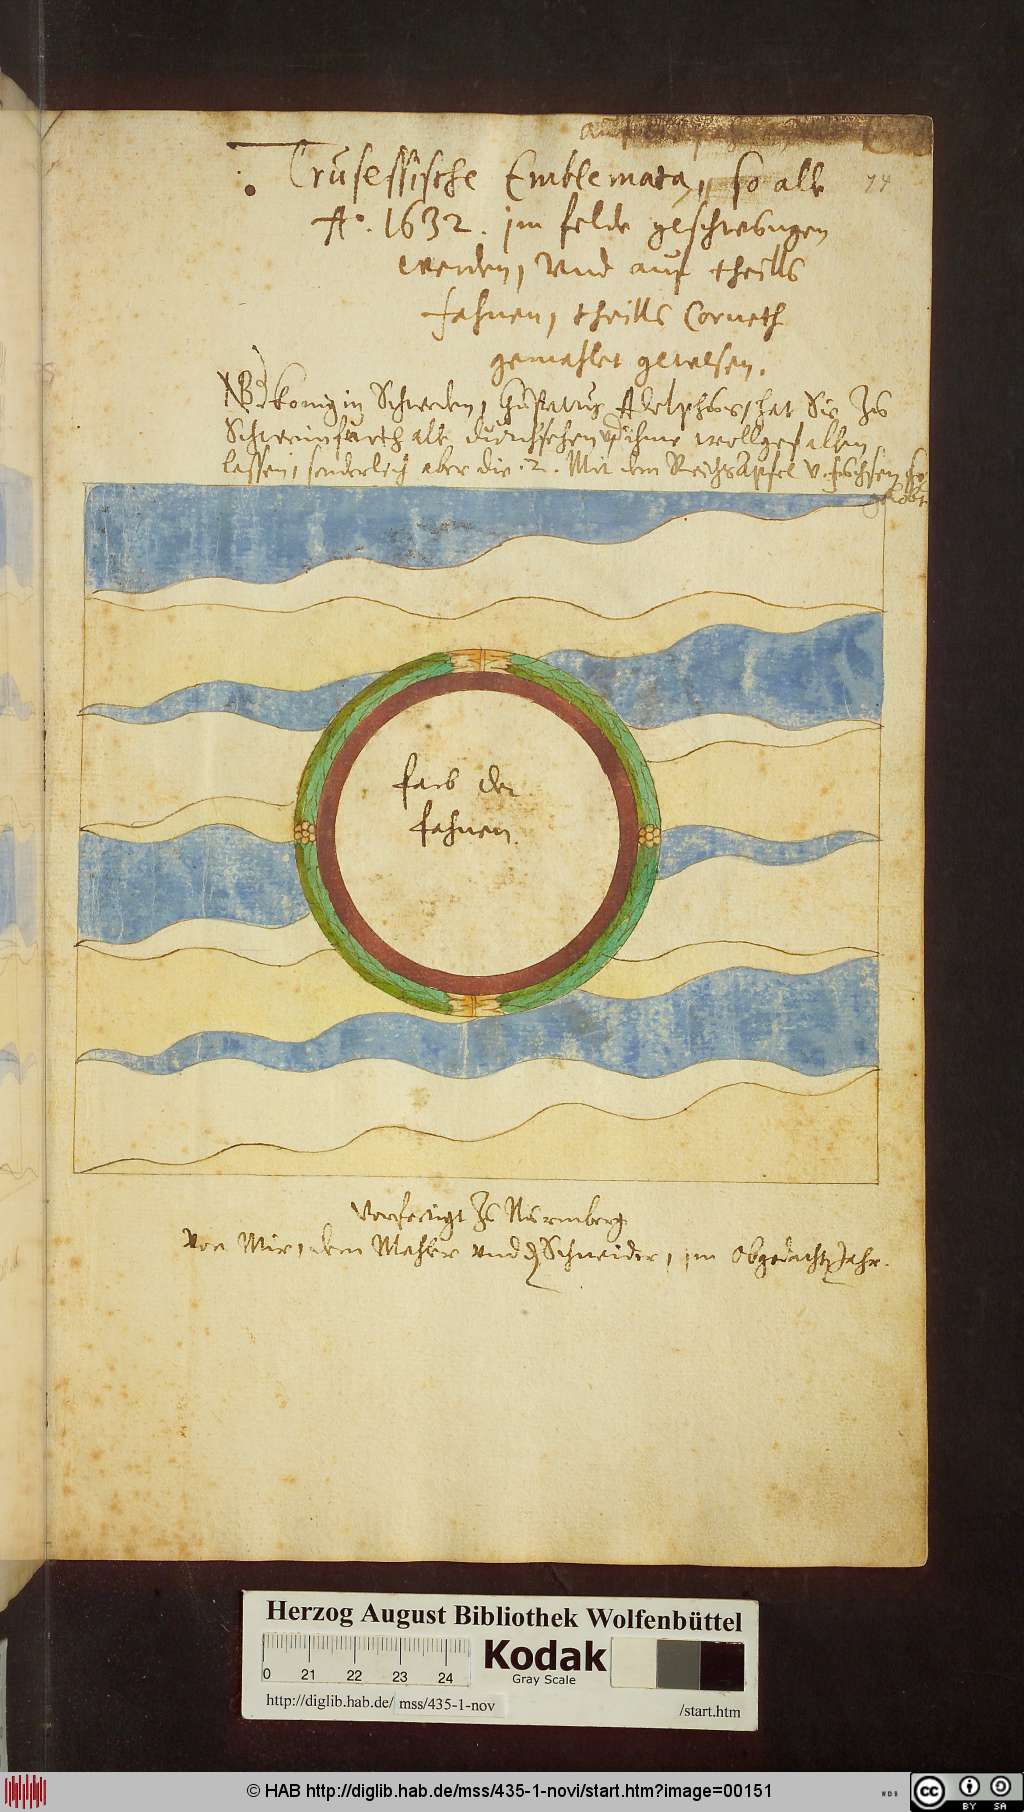 74
Trusessische Emblemata, so alle
Ao. 1632. im felde geschwungen
werden, Vnd auf theills
fahnen, theills Corneth
gemahlet gewesen.
NB. konig in Schweden, Gustavus Adolphus, hat Sie Zu
Schweinfurth alle durchsehen, vnd ihme wollgefallen
lassen, sonderlich aber die .2. Mit dem ReichsApfel v. füchsen, so
gelobt
farb der
fahnen.
Verfertigt Zu Nürmberg
Von Mir, dem Mahler vnd Schneider, im obgedachtem Jahr.
Herzog August Bibliothek Wolfenbüttel
0 21 22 23 24
Kodak
Gray Scale
http://diglib.hab.de/ mss/435-1-nov /start.htm
© HAB http://diglib.hab.de/mss/435-1-novi/start.htm?image=00151
WDB
cc BY SA